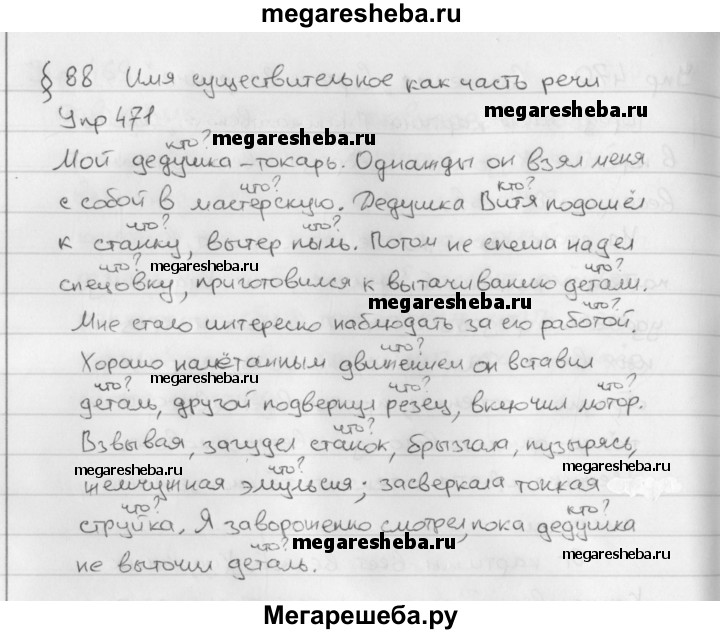 megaresheba.ru
§ 88 Имя существительное как часть речи
megaresheba.ru
Упр 471
кто? megaresheba.ru
Мой дедушка – токарь. Однажды он взял меня
что? кто?
с собой в мастерскую. Дедушка Витя подошёл
что? что?
к станку, вытер пыль. Потом не спеша надел
что? megaresheba.ru что?
спецовку, приготовился к вытачиванию детали.
megaresheba.ru что?
Мне стало интересно наблюдать за его работой.
что?
Хорошо намётанным движением он вставил
что? megaresheba.ru что? что?
деталь, другой подвернул резец, включил мотор.
что?
Взвывая, загудел станок, брызгала, пузырясь,
megaresheba.ru что? megaresheba.ru
жемчужная эмульсия, засверкала тонкая
что? кто?
струйка. Я заворожённо смотрел, пока дедушка
что? megaresheba.ru megaresheba.ru
не выточил деталь.
Мегарешеба.ру